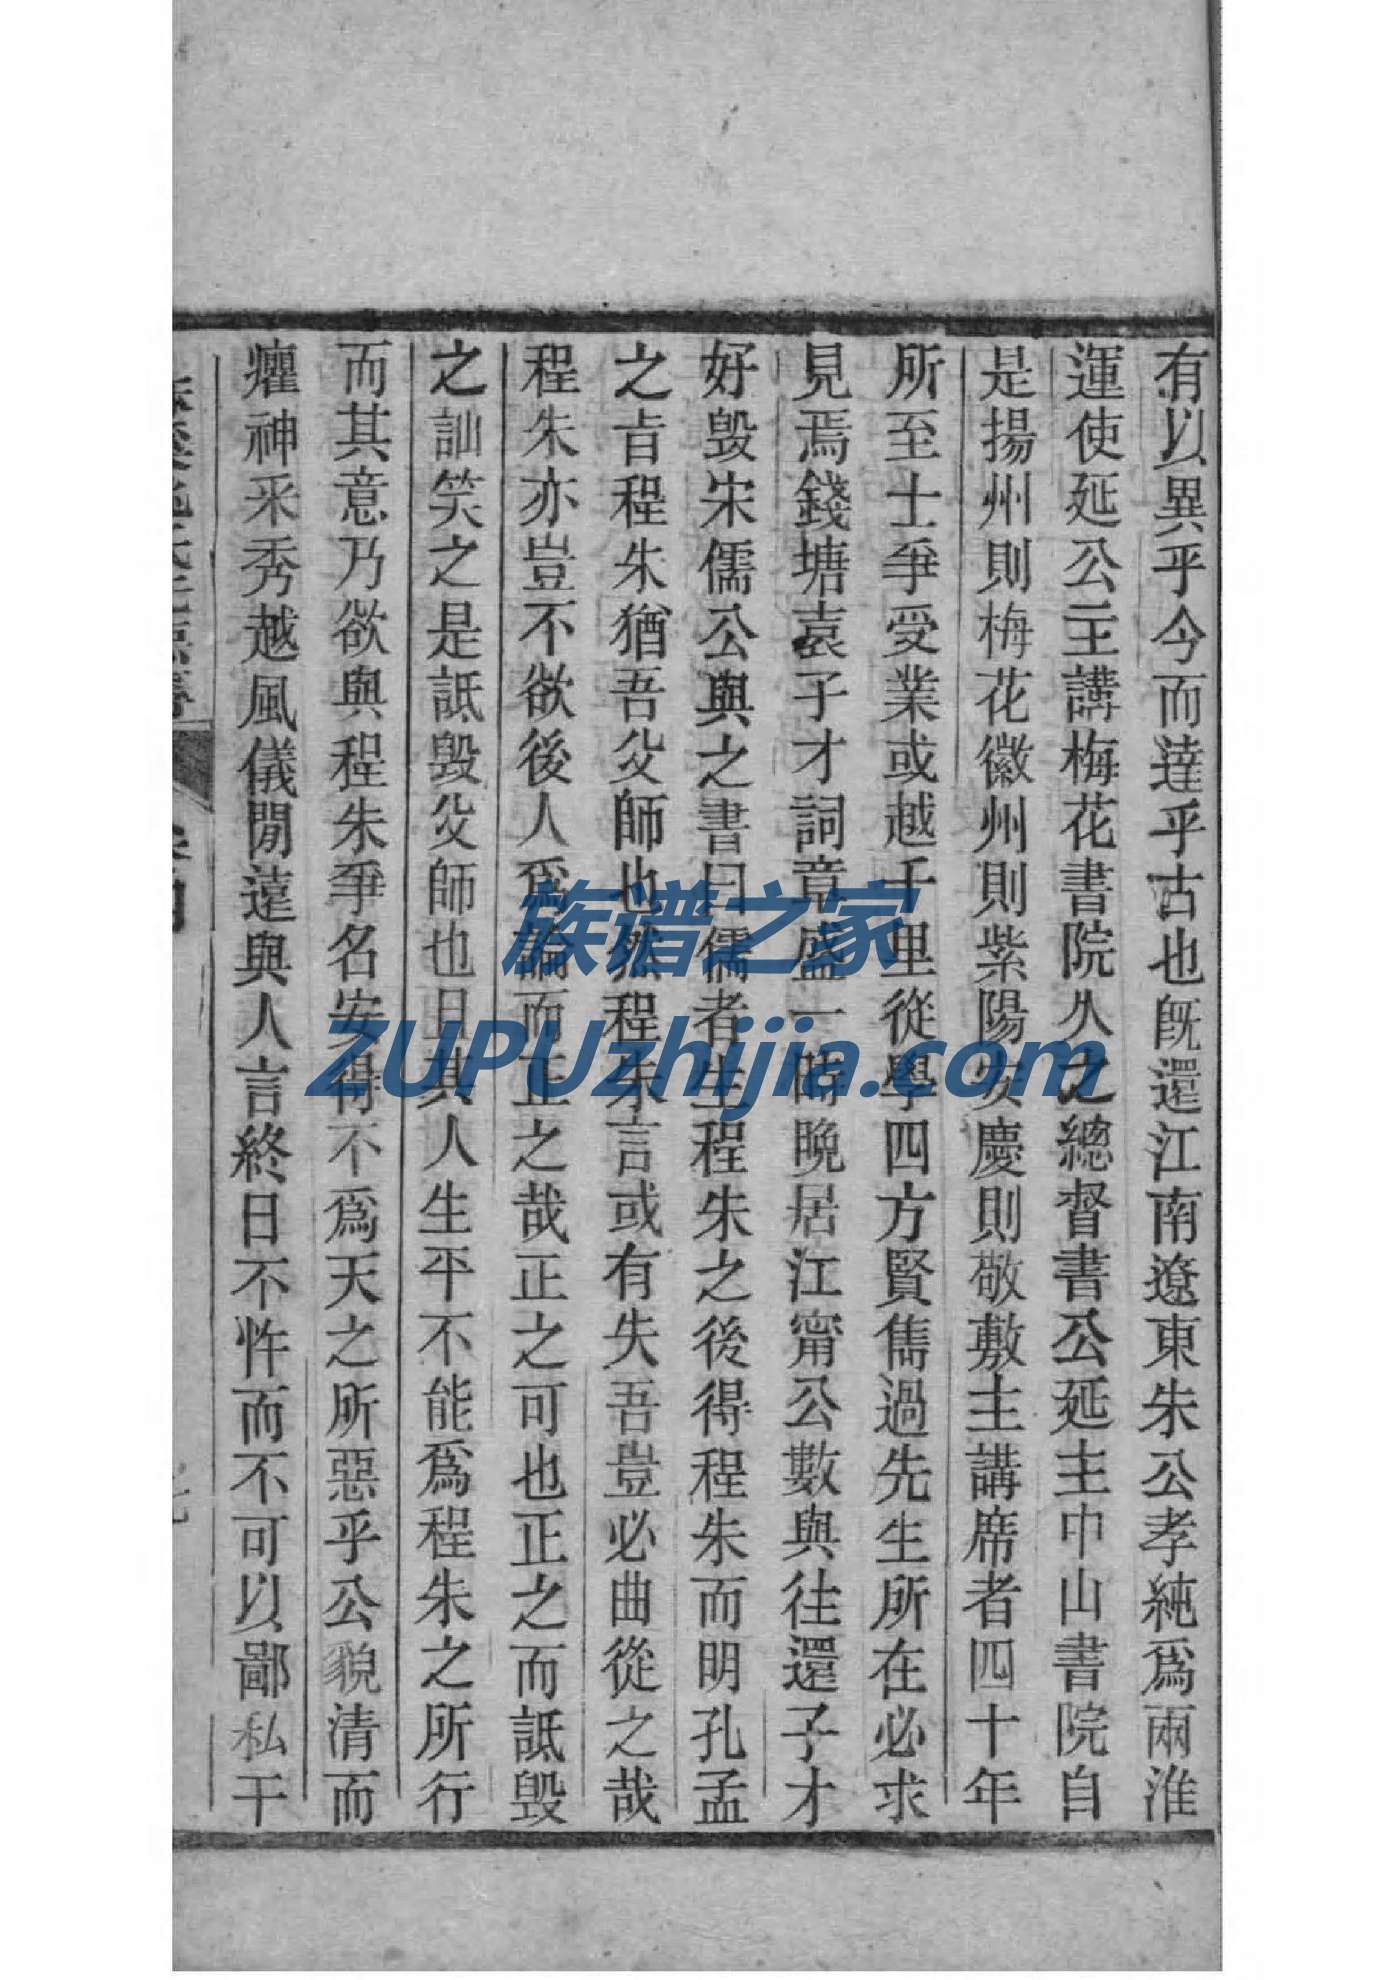 有以異乎今而達乎古也既還江南遼東朱公孝純爲兩淮
運使延公主講梅花書院久之總督書公延主中山書院自
是揚州則梅花徽州則紫陽安慶則敬敷主講席者四十年
所至士爭受業或越千里從學四方賢儁過先生所在必求
見焉錢塘袁子才詞章盛一時晩居江甯公數與往還子才
好毀宋儒公與之書曰儒者生程朱之後得程朱而明孔孟
之旨程朱猶吾父師也然程朱言或有失吾豈必曲從之哉
程朱亦豈不欲後人爲論而正之哉正之可也正之而詆毀
之訕笑之是詆毀父師也且其人生平不能爲程朱之所行
而其意乃欲與程朱爭名安得不爲天之所惡乎公貌清而
癯神采秀越風儀閒遠與人言終日不忤而不可以鄙私干
族谱之家
ZUPUzhijia.com